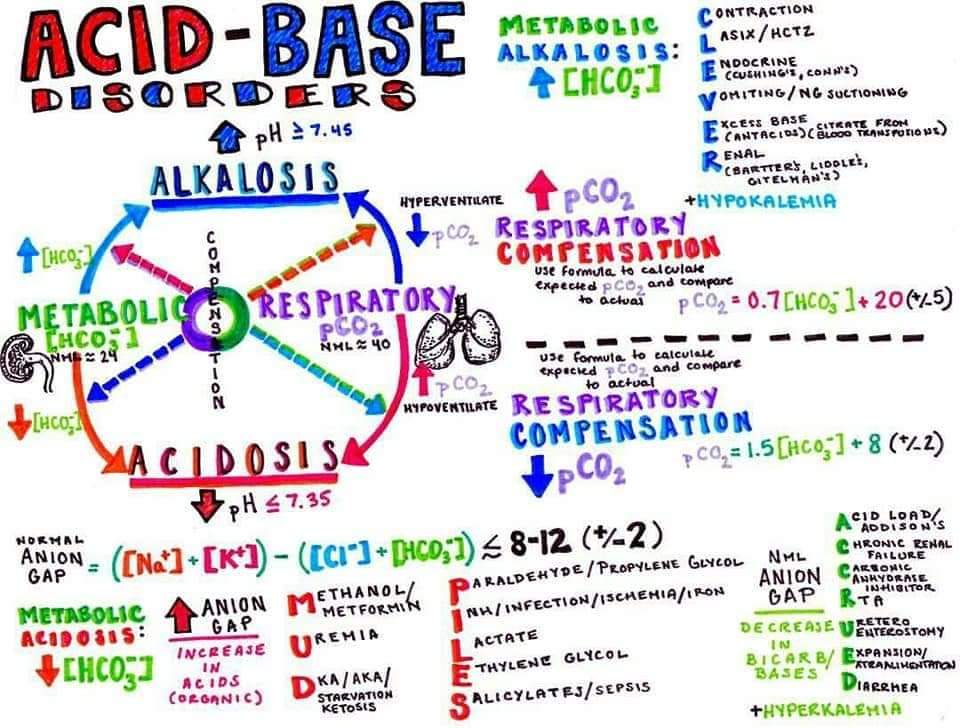 ACID-BASE
DISORDERS
pH ≥ 7.45
ALKALOSIS
↑[HCO₃⁻]
HYPERVENTILATE
↓pCO₂
COMPENSATION
METABOLIC
[HCO₃⁻]
NML ≈ 24
RESPIRATORY
pCO₂
NML ≈ 40
↓[HCO₃⁻]
↑pCO₂
HYPOVENTILATE
ACIDOSIS
pH ≤ 7.35
METABOLIC
ALKALOSIS:
↑[HCO₃⁻]
CONTRACTION
LASIX/HCTZ
ENDOCRINE
(CUSHING'S, CONN'S)
VOMITING/NG SUCTIONING
EXCESS BASE
(ANTACIDS)(CITRATE FROM
BLOOD TRANSFUSIONS)
RENAL
(BARTTER'S, LIDDLE'S,
GITELMAN'S)
+HYPOKALEMIA
↑pCO₂
RESPIRATORY
COMPENSATION
USE formula to calculate
expected pCO₂ and compare
to actual
pCO₂ = 0.7[HCO₃⁻] + 20(+/-5)
USE formula to calculate
expected pCO₂ and compare
to actual
RESPIRATORY
COMPENSATION
↓pCO₂
pCO₂ = 1.5[HCO₃⁻] + 8 (+/-2)
NORMAL
ANION
GAP
= ([Na⁺] + [K⁺]) - ([Cl⁻] + [HCO₃⁻]) ≤ 8-12 (+/-2)
METABOLIC
ACIDOSIS:
↓[HCO₃⁻]
↑ANION
GAP
INCREASE
IN
ACIDS
(ORGANIC)
METHANOL/
METFORMIN
UREMIA
DKA/AKA/
STARVATION
KETOSIS
PARALDEHYDE/PROPYLENE GLYCOL
INH/INFECTION/ISCHEMIA/IRON
LACTATE
ETHYLENE GLYCOL
SALICYLATES/SEPSIS
NML
ANION
GAP
DECREASE
IN
BICARB/
BASES
ACID LOAD/
ADDISON'S
CHRONIC RENAL
FAILURE
CARBONIC
ANHYDRASE
INHIBITOR
RTA
URETERO
ENTEROSTOMY
EXPANSION/
DIARRHEA
+HYPERKALEMIA